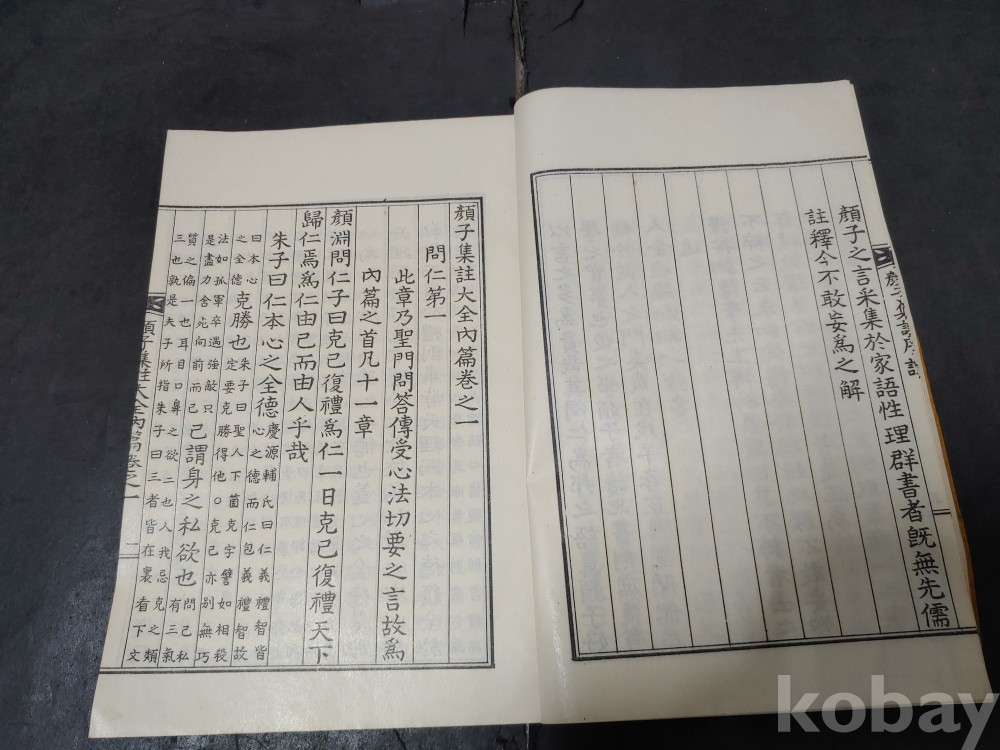 顔子之言采集於家語性理群書者既無先儒
註釋今不敢妄爲之解
顔子集註大全內篇卷之一
問仁第一
此章乃聖門問答傳受心法切要之言故爲
內篇之首凡十一章
顔淵問仁子曰克己復禮爲仁一日克己復禮天下
歸仁焉爲仁由己而由人乎哉
朱子曰仁本心之全德慶源輔氏曰仁義禮智皆
心之德而仁包義禮智故
曰本心
之全德克勝也朱子曰聖人下箇克字譬如相殺
定要克勝得他○克己亦別無巧
法如孤軍卒遇強敵只
是盡力舍死向前而已己謂身之私欲也問己私
有三氣
質之偏一也耳目口鼻之欲二也人我忌克之類
三也孰是夫子所指朱子曰三者皆在裏看下文
顔子集註大全內篇卷之一
二
kobay